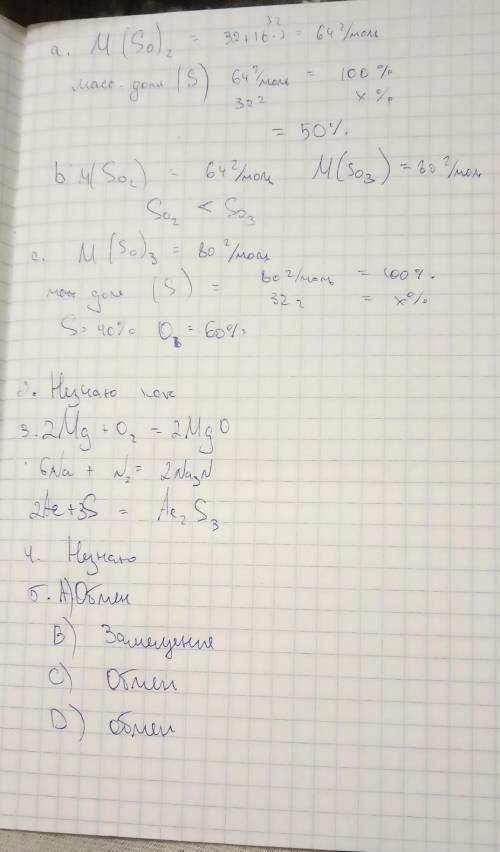 a. M(So)₂ = 32+16·2 = 64 г/моль
32
масс. доля (S) 64 г/моль = 100%
32 г x%
= 50%.
b. M(So₂) = 64 г/моль M(So₃) = 80 г/моль
So₂ < So₃
c. M(So)₃ = 80 г/моль
масс доля (S) = 80 г/моль = 100%.
32 г = x%
S = 40% O₃ = 60%
2. Незнаю как
3. 2Mg + O₂ = 2MgO
6Na + N₂ = 2Na₃N
2Ae+3S = Ae₂S₃
4. Незнаю
5. A) Обмен
B) Замещение
C) Обмен
D) обмен